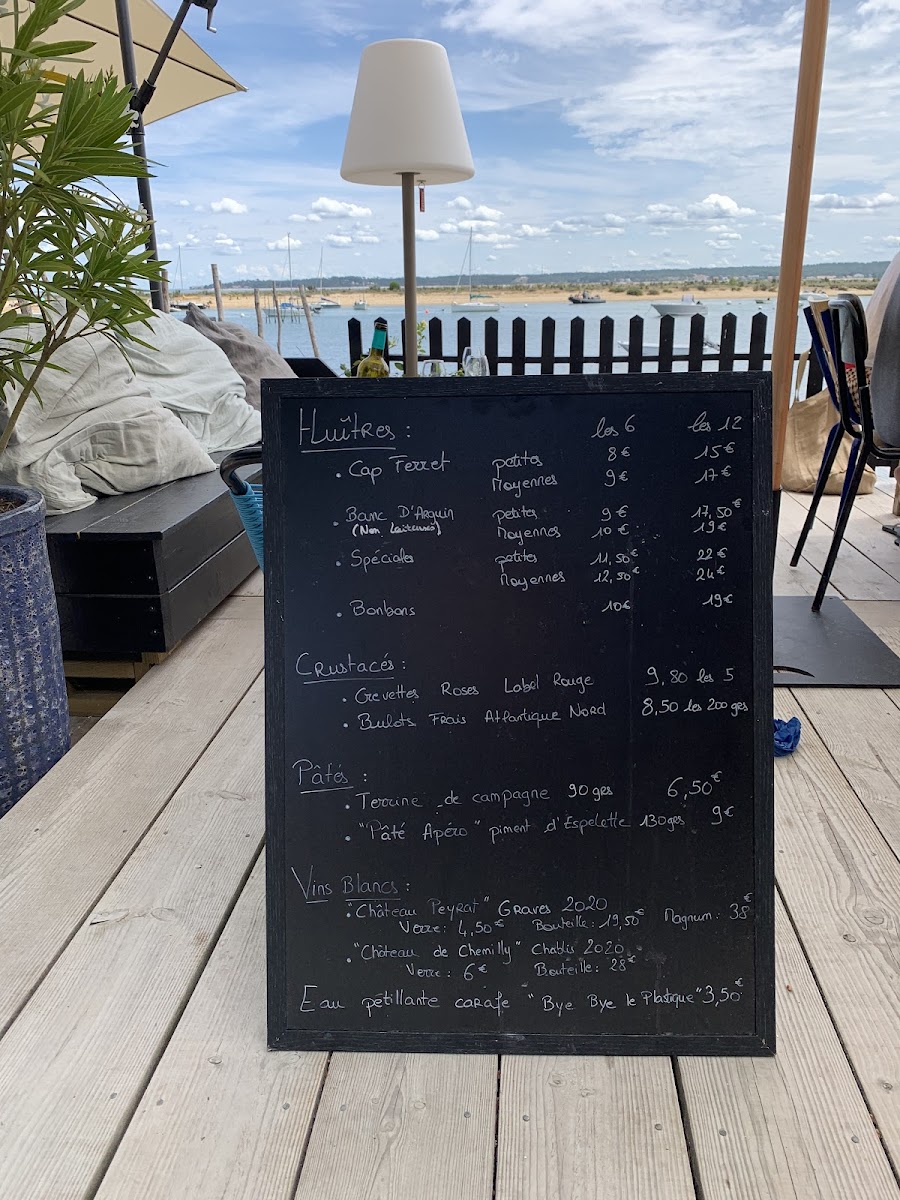 Huîtres : les 6 les 12
. Cap Ferret petites 8€ 15€
Moyennes 9€ 17€
. Banc D'Arguin petites 9€ 17,50€
(Non laiteuses) Moyennes 10€ 19€
. Spéciales petites 11,50€ 22€
Moyennes 12,50€ 24€
. Bonbons 10€ 19€
Crustacés :
. Crevettes Roses Label Rouge 9,80 les 5
. Bulots Frais Atlantique Nord 8,50 les 200 grs
Pâtés :
. Terrine de campagne 90grs 6,50€
. "Pâté Apéro" piment d'Espelette 130grs 9€
Vins Blancs :
. "Château Peyrat" Graves 2020
Verre : 4,50€ Bouteille : 19,50€ Magnum : 38€
. "Château de Chemilly" Chablis 2020
Verre : 6€ Bouteille : 28€
Eau pétillante carafe "Bye Bye le Plastique" 3,50€